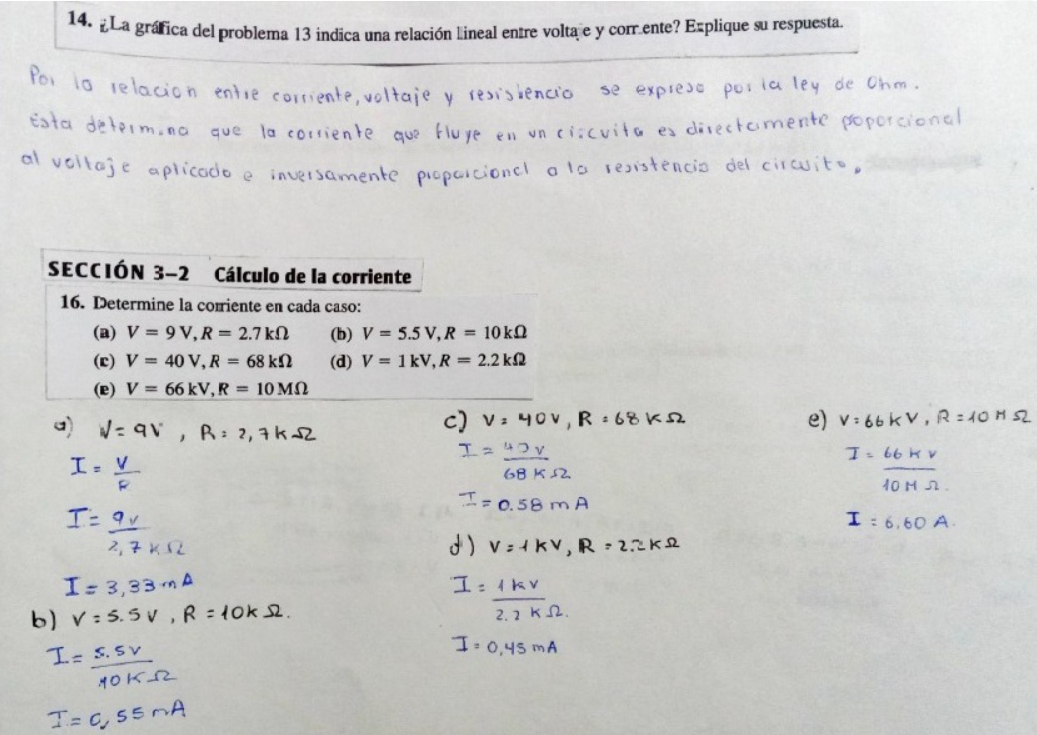 14. ¿La gráfica del problema 13 indica una relación Lineal entre voltaje y corriente? Explique su respuesta.
Por la relacion entre corriente, voltaje y resistencia se expresa por la ley de Ohm.
Esta determina que la corriente que fluye en un circuito es directamente poporcional
al voltaje aplicado e inversamente proporcional a la resistencia del circuito.
SECCIÓN 3–2 Cálculo de la corriente
16. Determine la corriente en cada caso:
(a) V = 9 V, R = 2.7 kΩ (b) V = 5.5 V, R = 10 kΩ
(c) V = 40 V, R = 68 kΩ (d) V = 1 kV, R = 2.2 kΩ
(e) V = 66 kV, R = 10 MΩ
a) V = 9V, R = 2,7 kΩ
I = V
R
I = 9v
2,7 kΩ
I = 3,33 mA
b) V = 5.5 V, R = 10k Ω.
I = 5.5V
10K Ω
I = 0,55 mA
c) V = 40V, R = 68 KΩ
I = 40 V
68 K Ω
I = 0.58 mA
d) V = 1 KV, R = 2.2 KΩ
I = 1 KV
2.2 K Ω.
I = 0,45 mA
e) V = 66 KV, R = 10 M Ω
I = 66 K V
10 M Ω.
I = 6,60 A.